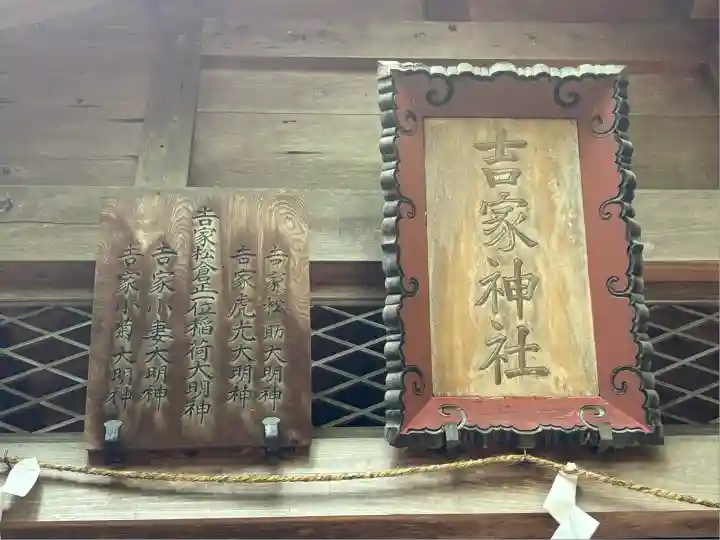 吉家神社
吉家松助大明神
吉家虎尤大明神
吉家松倉正一位稲荷大明神
吉家小妻大明神
吉家小菊大明神